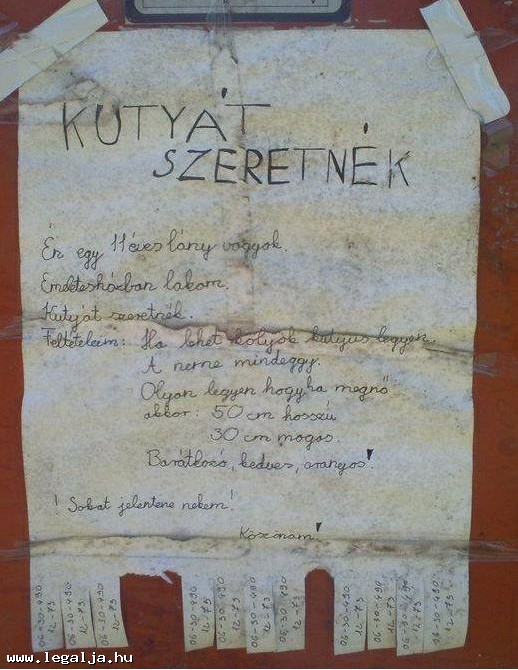 KUTYÁT
SZERETNÉK
Én egy 11 éves lány vagyok.
Emeletesházban lakom.
Kutyát szeretnék.
Feltételeim: Ha lehet kölyök kutyus legyen.
A neme mindeggy.
Olyan legyen hogyha megnő
akkor: 50 cm hosszú
30 cm magas.
Barátkozó, kedves, aranyos!
! Sokat jelentene nekem!
Köszönöm!
06-30-490
12-73
06-30-490
12-73
06-30-490
12-73
06-30-490
12-73
06-30-490
12-73
06-30-490
12-73
06-30-490
12-73
06-30-490
12-73
06-30-490
12-73
06-30-490
12-73
06-30-490
12-73
www.legalja.hu